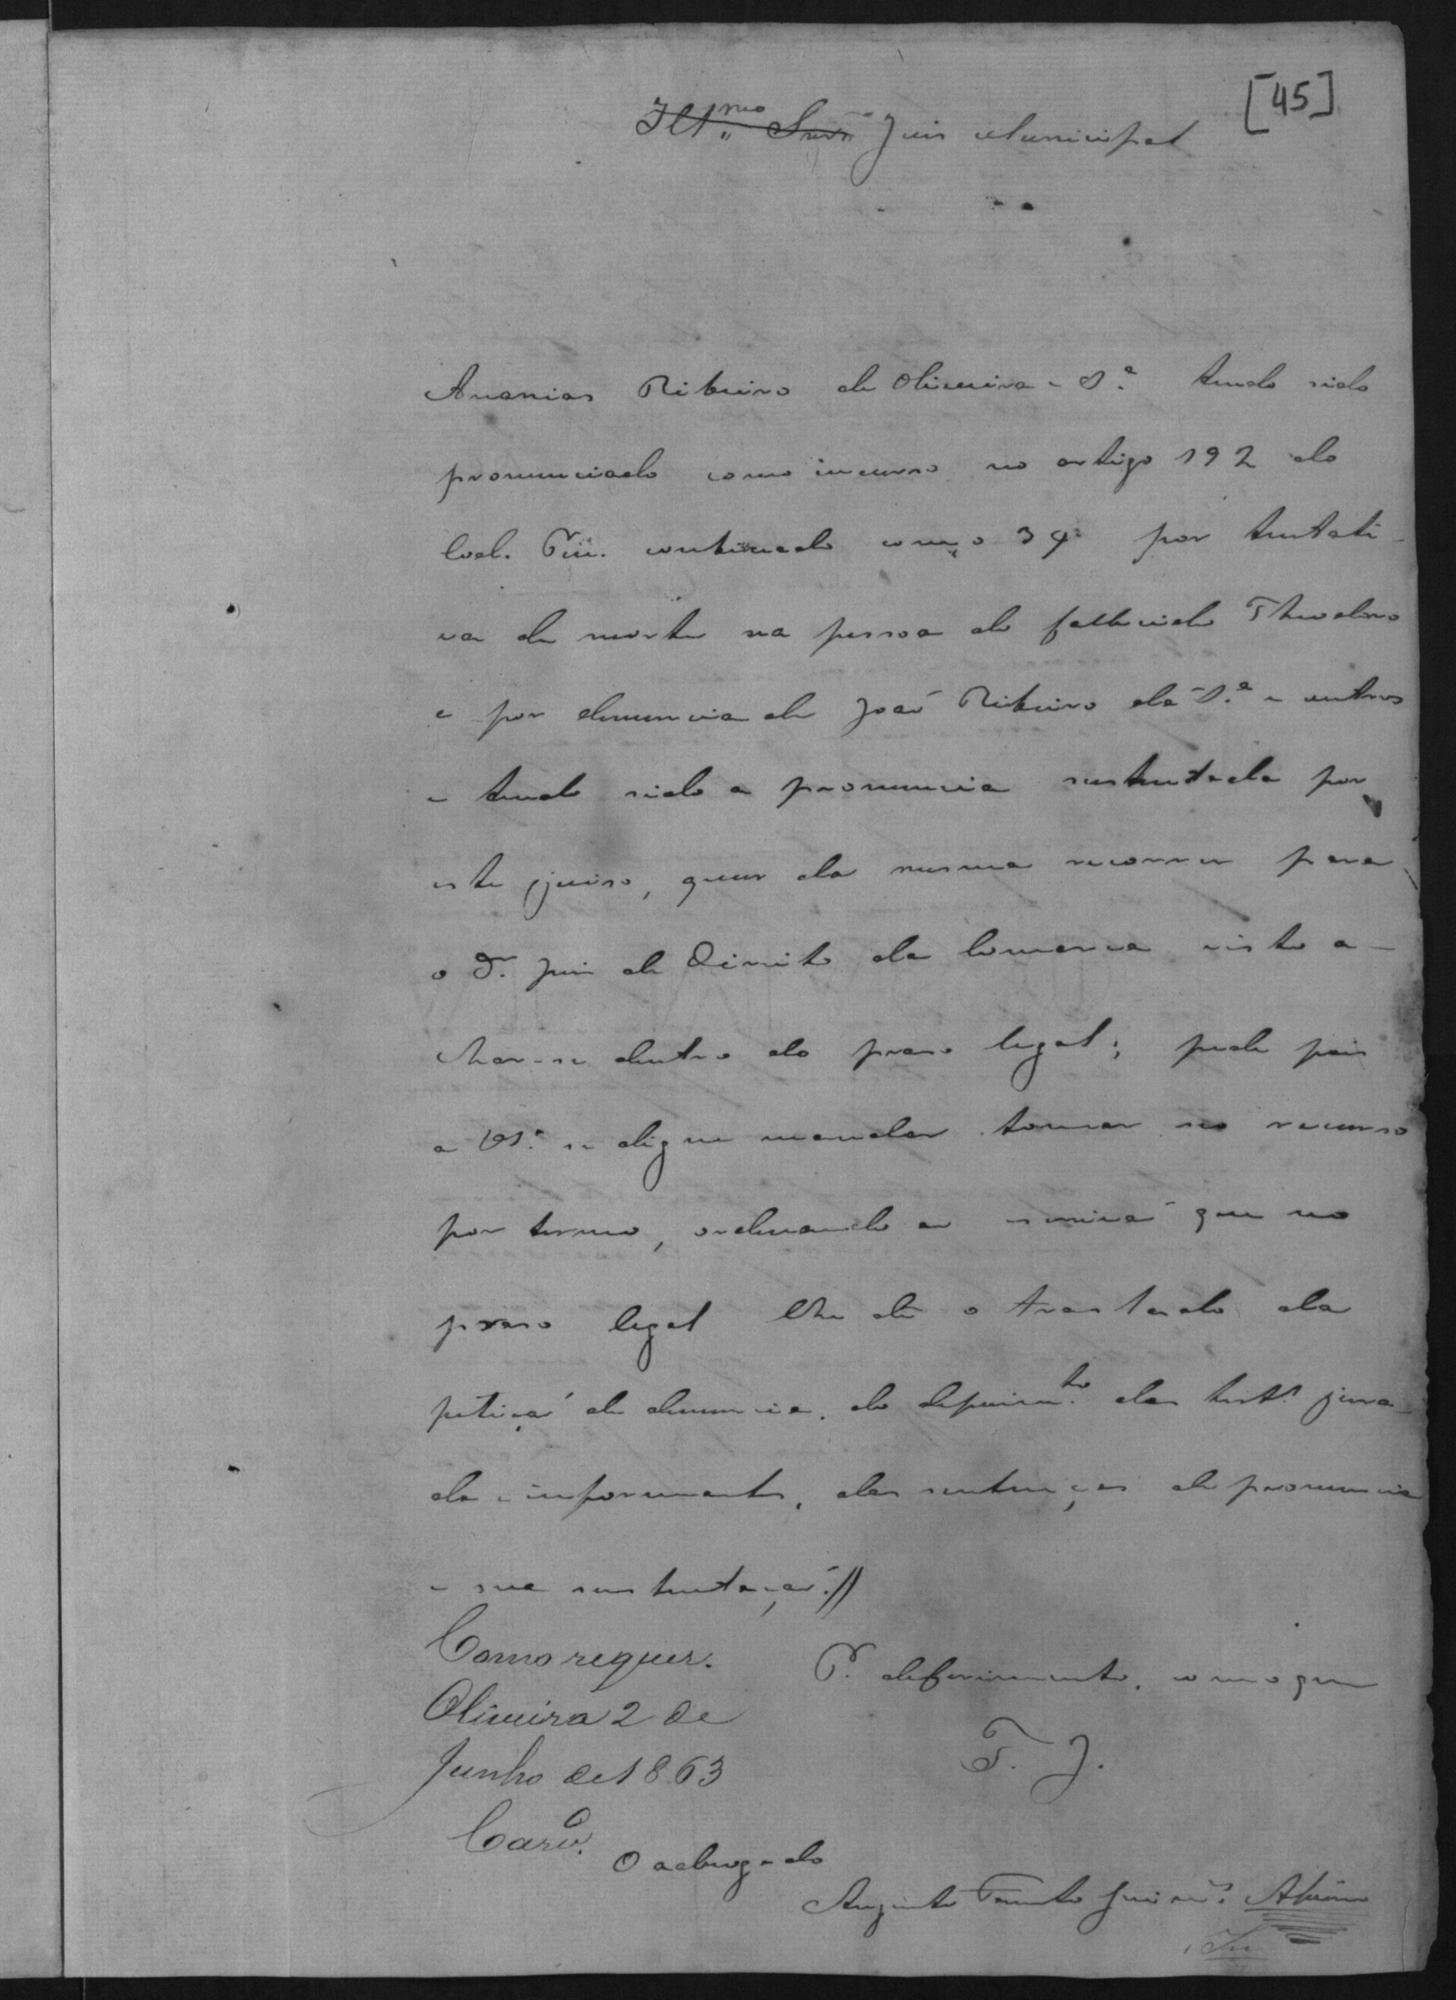 [45]
Ill.mo Snr. Juis Municipal
Ananias Ribeiro de Oliveira e S.a tendo sido
pronunciado como incurso no artigo 192 do
Cod. Cri. com o 34 por tentati-
va de morte na pessoa do fallecido Theodoro
e por denuncia de João Ribeiro da S.a e outros
e tendo sido a pronuncia sustentada por
este juiso, quer da mesma recorrer para
o Dr. Juis de Direito da Comarca visto a-
char-se dentro do praso legal; pede pois
a VS.a se digne mandar tomar seo recurso
por termo, ordenando ao escrivaõ que no
praso legal lhe dê o traslado da
petiçaõ de denuncia, do depoim.to das test.as jura-
da e informante, das sentenças de pronuncia
e sua sustentaçaõ.//
Como requer.
Oliveira 2 de
Junho de 1863
P. deferimento, com o que
F. J.
O advogado
Augusto